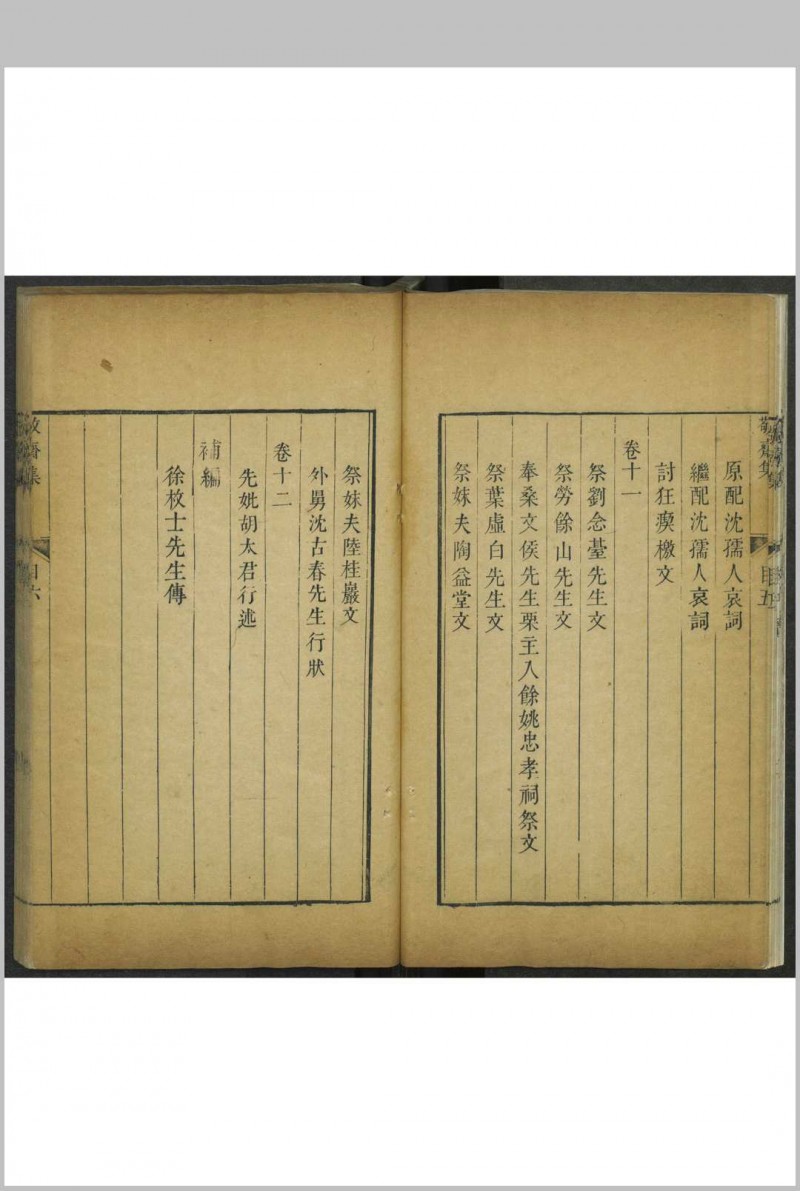 原配沈孺人哀詞
繼配沈孺人哀詞
討狂瘼檄文
卷十一
祭劉念臺先生文
祭勞餘山先生文
奉桑文侯先生栗主入餘姚忠孝祠祭文
祭葉虛白先生文
祭妹夫陶益堂文
祭妹夫陸桂巖文
外舅沈古春先生行狀
卷十二
先妣胡太君行述
補編
徐枚士先生傳